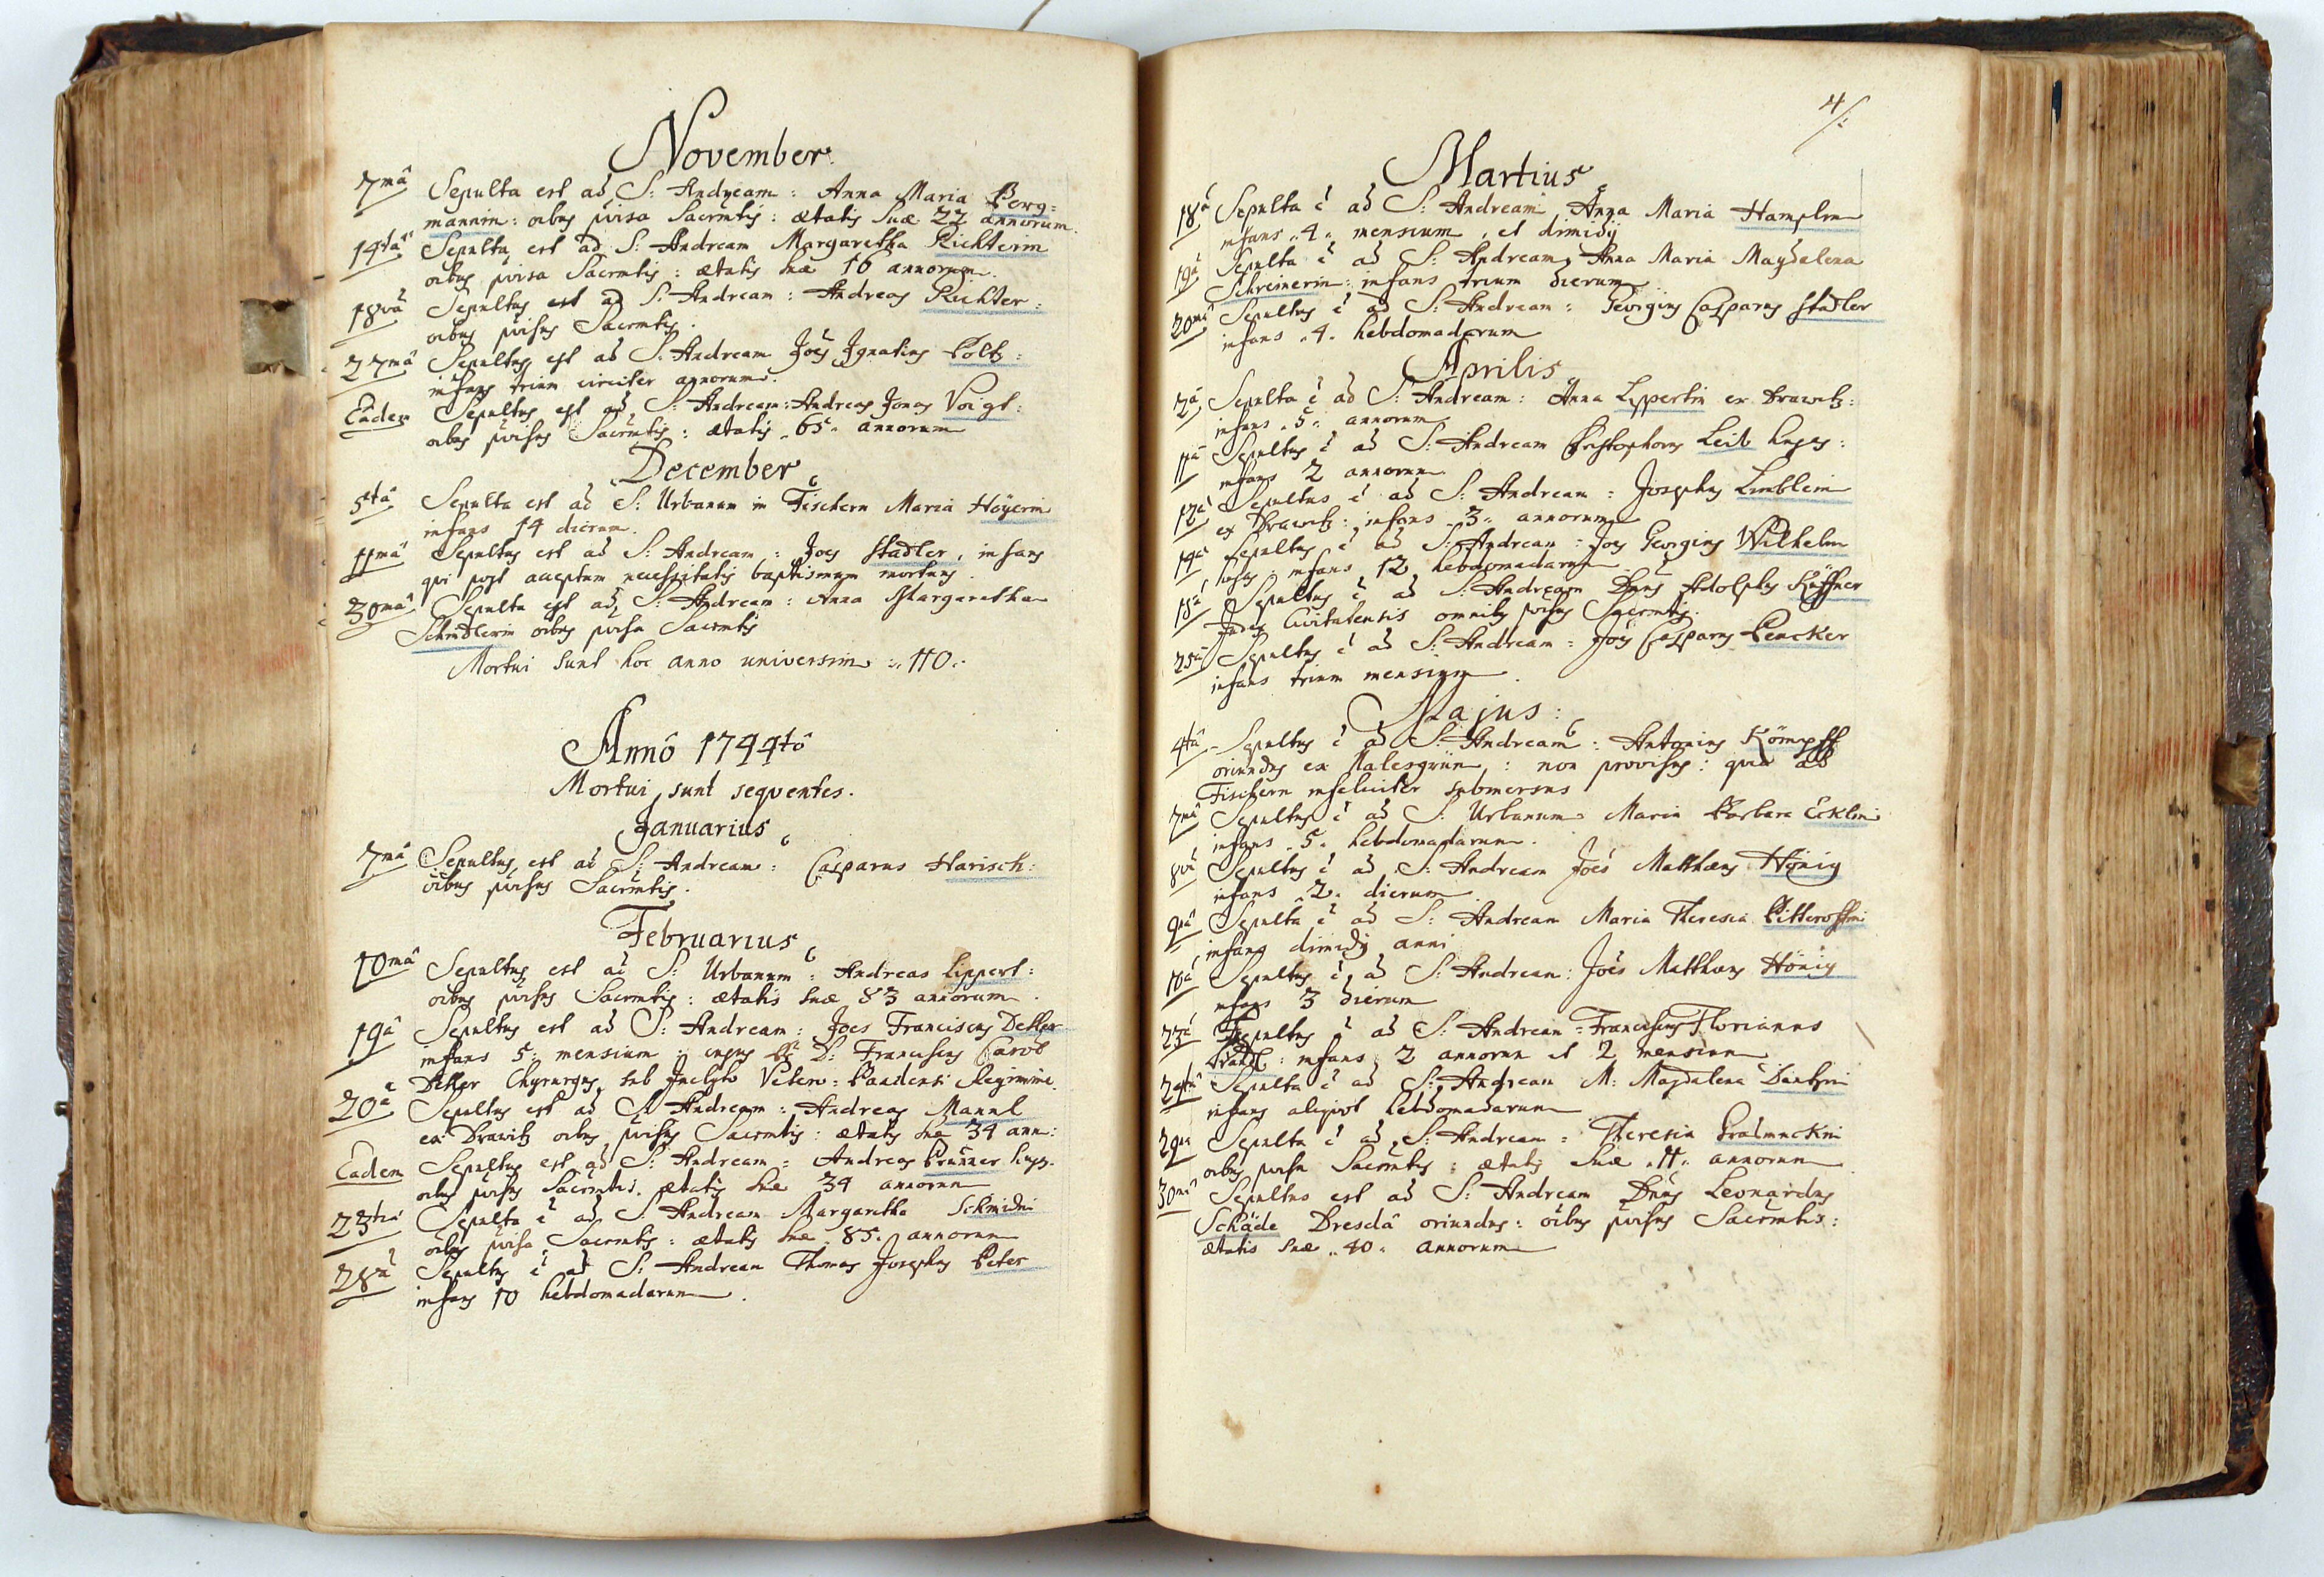 November
7mâ Sepulta est ad S: Andream: Anna Maria Berg=
mannin: oibus pvisa Sacrmtis: ætatis suæ 22 annorum.
14tâ Sepulta est ad S: Andream Margaretha Richterin
oibus pvisa Sacrmtis: ætatis suæ 16 annorum.
18vâ Sepultus est ad S: Andream: Andreas Richter:
oibus pvisus Sacrmtis.
27mâ Sepultus est ad S: Andream Joês Ignatius Poltz:
infans trium circiter annorum.
Eâdem Sepultus est ad S: Andream: Andreas Jonas Voigt:
oibus pvisus Sacrmtis: ætatis 65 annorum
December
5tâ Sepulta est ad S: Urbanum in Fischern Maria Höyerin
infans 14 dierum.
11mâ Sepultus est ad S: Andream: Joes Stadler, infans
qvi post acceptum necessitatis baptismum mortuus.
30mâ Sepulta est ad S: Andream: Anna Margaretha
Schridlerin oibus pvisa Sacrmtis
Mortui sunt hoc anno universim: 110.
Annô 1744tô
Mortui sunt seqventes.
Januarius
7mâ Sepultus est ad S: Andream: Casparus Harisch:
oibus pvisus Sacrmtis.
Februarius
10mâ Sepultus est ad S: Urbanum: Andreas Lippert:
oibus pvisus Sacrmtis: ætatis suæ 83 annorum.
19â Sepultus est ad S: Andream: Joes Franciscus Detter
infans 5: mensium: cujus D: Franciscus Carol
Detter Chyrurgus sub Inclyto Vetero= Regimine.
20â Sepultus est ad S: Andream: Andreas Mannl
ex Drawitz oibus pvisus Sacrmtis: ætatis suæ 34 ann:
Eâdem Sepultus est ad S: Andream: Andreas Brunner hujas.
oibus pvisus Sacrmtis. ætatis suæ 34 annorum
23tiâ Sepulta ê ad S: Andream Margaretha Schmidin
oibus pvisa Sacrmtis: ætatis suæ 85. annorum
28â Sepultus ê ad S: Andream Thomas Josephus Peter
infans 10 hebdomadarum.
4/:
Martius
18â Sepulta ê ad S: Andream Anna Maria Hamplin
infans 4 mensium, et dimidij
19â Sepulta ê ad S: Andream Anna Maria Magdalena
Schreinerin: infans trium dierum
20mâ Sepultus ê ad S: Andream: Georgius Casparus Stadler
infans 4. hebdomadarum
Aprilis
2â Sepulta ê ad S: Andream: Anna Lippertin ex Drawitz:
infans 5 annorum
11â Sepultus ê ad S: Andream Christophorus Leib hujas:
infans 2 annorum
13â Sepultus ê ad S: Andream: Josephus Limblein
ex Drawitz: infans 3 annorum
14â Sepultus ê ad S: Andream: Joes Georgius Wilhelm
hujas: infans 12 hebdomadarum
18â Sepultus ê ad S: Andream Dnus Adolphus Küffner
Judex Civitatensis omnibus pvisus Sacrmtis.
25â Sepultus ê ad S: Andream: Joês Casparus Pencker
infans trium mensium.
Majus:
4tâ Sepultus ê ad S: Andream: Antonius Kömpff
oriundus ex Malesgrün: non provisus: qvia ad
Fischern infeliciter submersus
7mâ Sepulta ê ad S: Urbanum Maria Barbara Ecklin
infans 5 hebdomadarum.
8vâ Sepultus ê ad S: Andream Joês Matthæus Hönig
infans 2. dierum
9nâ Sepulta ê ad S: Andream Maria Theresia Pitteroffin
infans dimidij anni
10â Sepultus ê ad S: Andream: Joês Matthæus Hönig
infans 3 dierum
23â Sepultus ê ad S: Andream: Franciscus Florianus
: infans 2 annorum et 2 mensium
24tâ Sepulta ê ad S: Andream M: Magdalena Dantzin
infans aliqvot hebdomadarum
29nâ Sepulta ê ad S: Andream: Theresia
oibus pvisa Sacrmtis: ætatis suæ 11 annorum
30mâ Sepultus est ad S: Andream Dnus Leonardus
Schäde Dresdâ oriundus: oibus pvisus Sacrmtis:
ætatis suæ 40 annorum